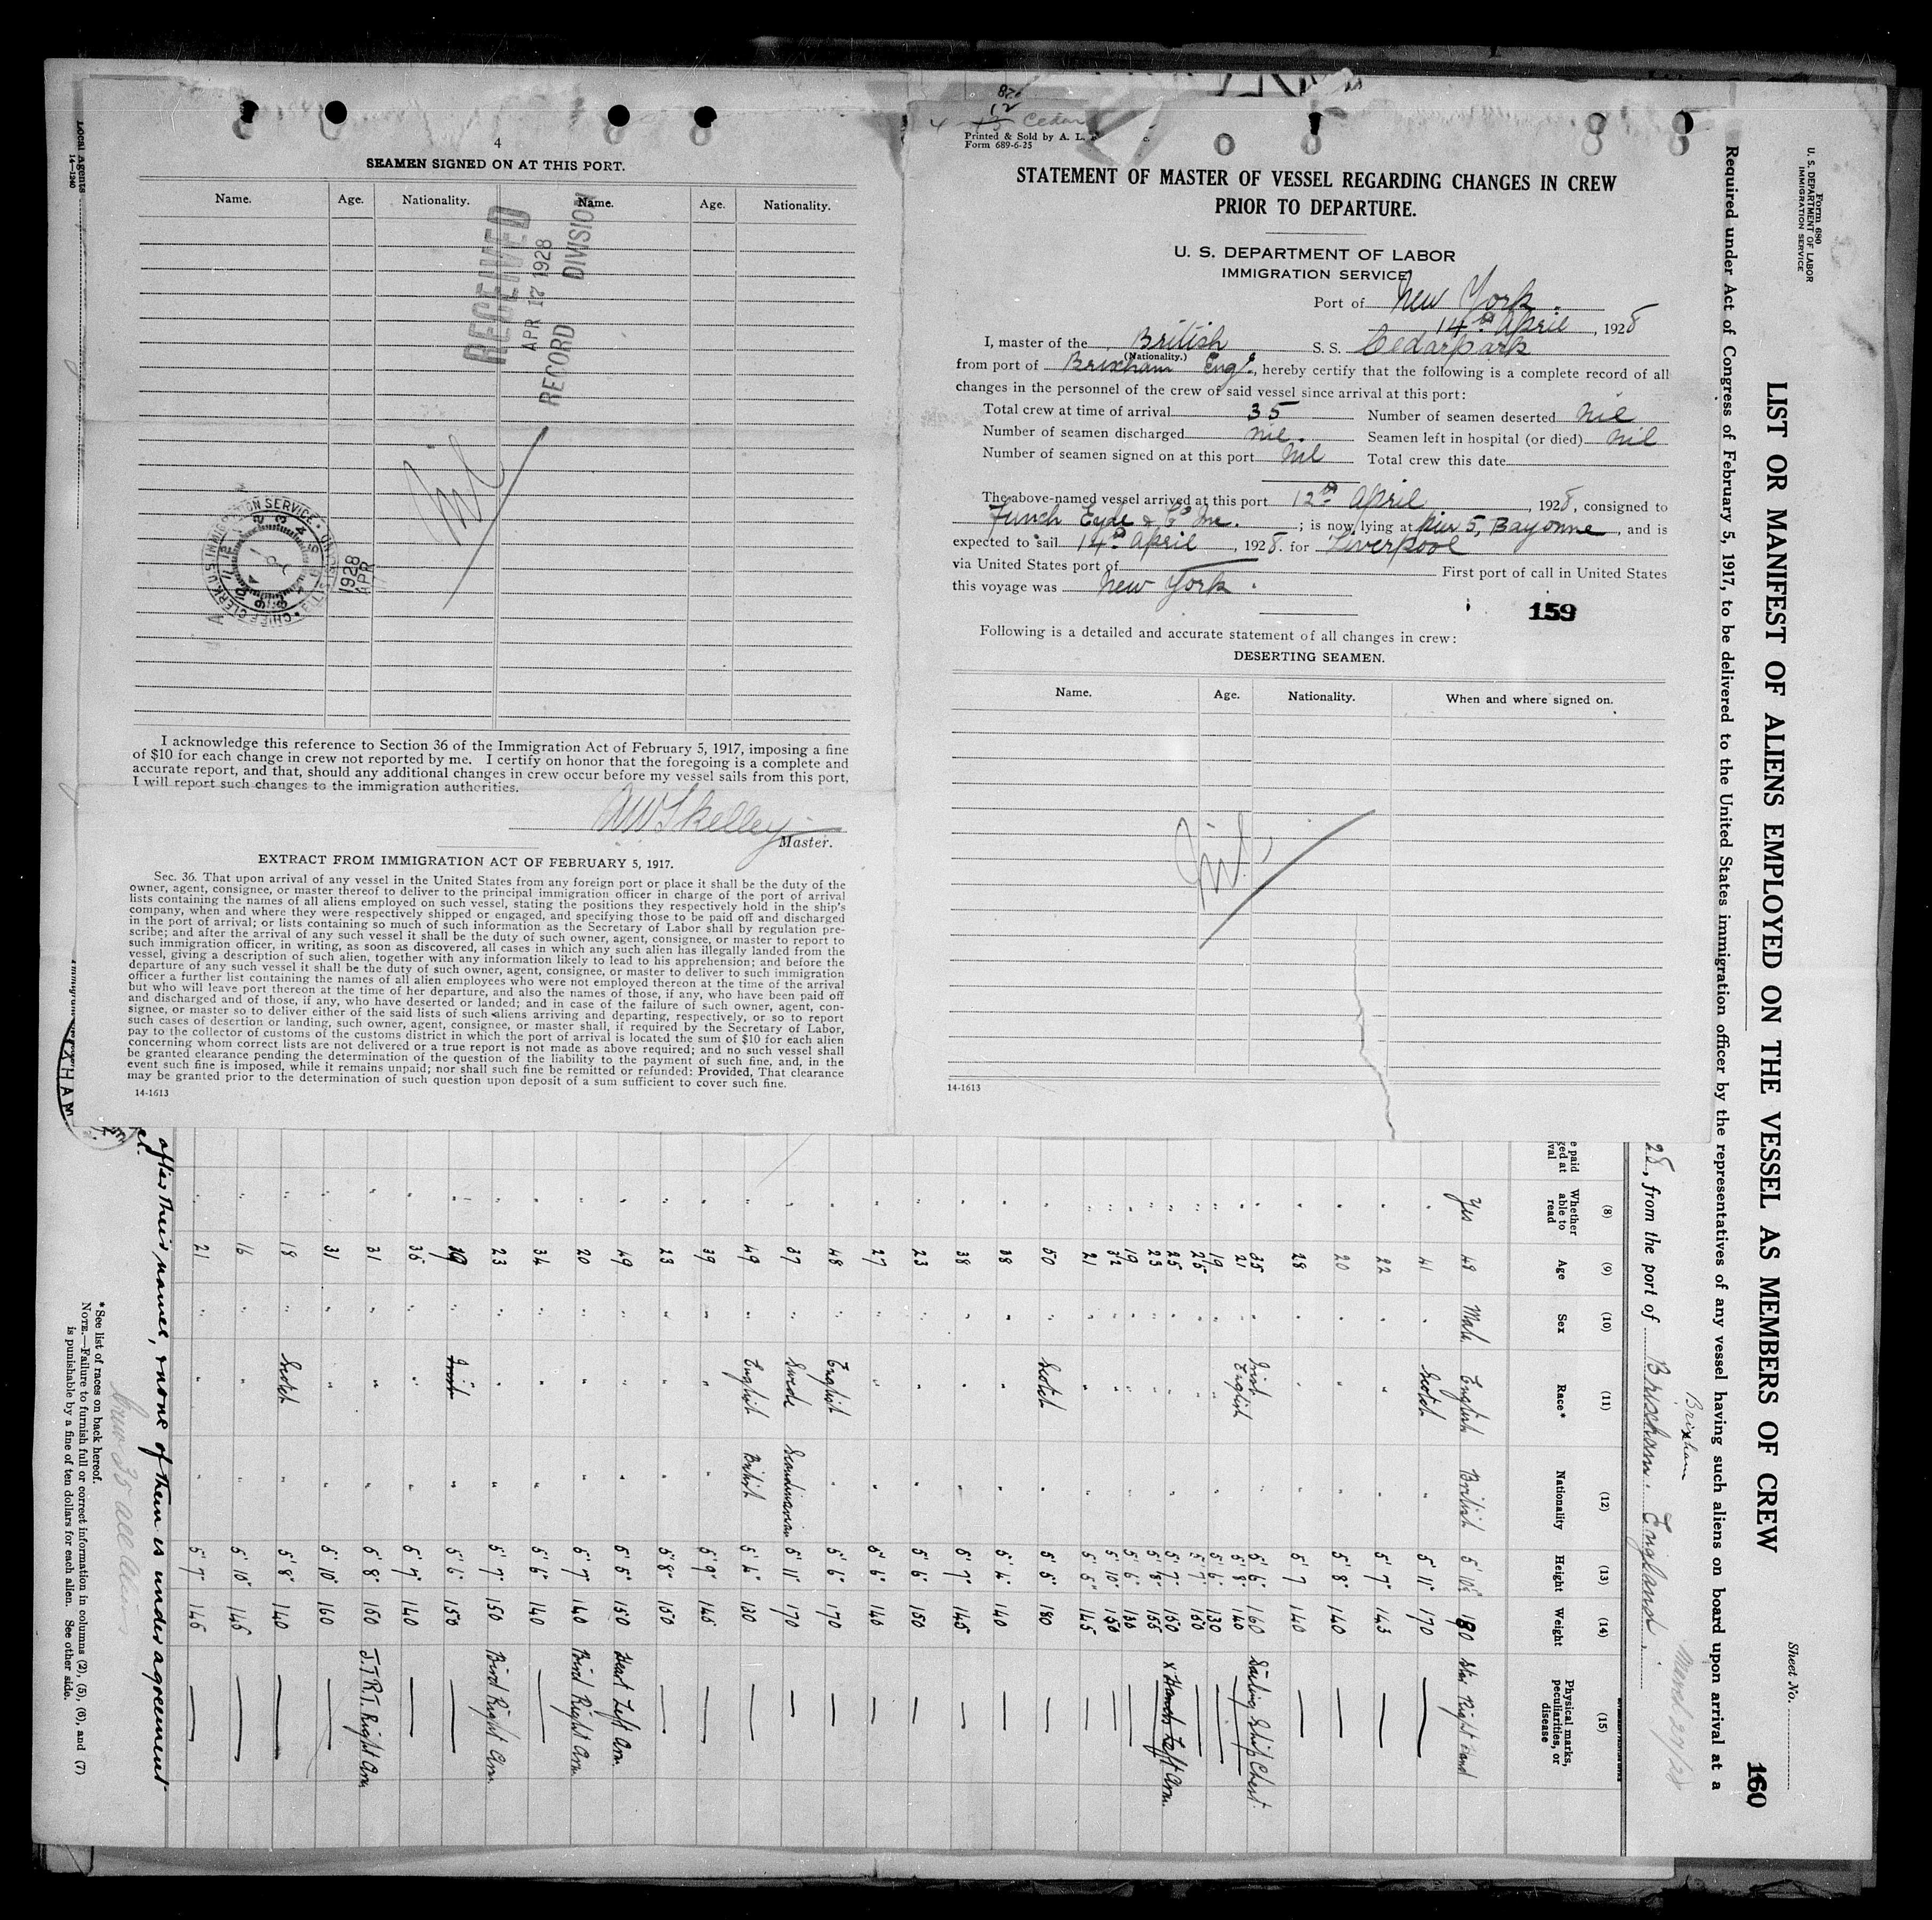 4
SEAMEN SIGNED ON AT THIS PORT.
Name. Age. Nationality. Name. Age. Nationality.
RECEIVED
APR 17 1928
RECORD DIVISION
Nil
CHIEF CLERK U.S. IMMIGRATION SERVICE
1928
APR
I acknowledge this reference to Section 36 of the Immigration Act of February 5, 1917, imposing a fine
of $10 for each change in crew not reported by me. I certify on honor that the foregoing is a complete and
accurate report, and that, should any additional changes in crew occur before my vessel sails from this port,
I will report such changes to the immigration authorities.
AW Skelley
Master.
EXTRACT FROM IMMIGRATION ACT OF FEBRUARY 5, 1917.
Sec. 36. That upon arrival of any vessel in the United States from any foreign port or place it shall be the duty of the
owner, agent, consignee, or master thereof to deliver to the principal immigration officer in charge of the port of arrival
lists containing the names of all aliens employed on such vessel, stating the positions they respectively hold in the ship's
company, when and where they were respectively shipped or engaged, and specifying those to be paid off and discharged
in the port of arrival; or lists containing so much of such information as the Secretary of Labor shall by regulation pre-
scribe; and after the arrival of any such vessel it shall be the duty of such owner, agent, consignee, or master to report to
such immigration officer, in writing, as soon as discovered, all cases in which any such alien has illegally landed from the
vessel, giving a description of such alien, together with any information likely to lead to his apprehension; and before the
departure of any such vessel it shall be the duty of such owner, agent, consignee, or master to deliver to such immigration
officer a further list containing the names of all alien employees who were not employed thereon at the time of the arrival
but who will leave port thereon at the time of her departure, and also the names of those, if any, who have been paid off
and discharged and of those, if any, who have deserted or landed; and in case of the failure of such owner, agent, con-
signee, or master so to deliver either of the said lists of such aliens arriving and departing, respectively, or so to report
such cases of desertion or landing, such owner, agent, consignee, or master shall, if required by the Secretary of Labor,
pay to the collector of customs of the customs district in which the port of arrival is located the sum of $10 for each alien
concerning whom correct lists are not delivered or a true report is not made as above required; and no such vessel shall
be granted clearance pending the determination of the question of the liability to the payment of such fine, and, in the
event such fine is imposed, while it remains unpaid; nor shall such fine be remitted or refunded: Provided, That clearance
may be granted prior to the determination of such question upon deposit of a sum sufficient to cover such fine.
14-1613
Cedar
Printed & Sold by A. L.
Form 689-6-25
STATEMENT OF MASTER OF VESSEL REGARDING CHANGES IN CREW
PRIOR TO DEPARTURE.
U. S. DEPARTMENT OF LABOR
IMMIGRATION SERVICE
Port of New York.
14th April, 1928
I, master of the British S. S. Cedarpark
(Nationality.)
from port of Brixham Eng., hereby certify that the following is a complete record of all
changes in the personnel of the crew of said vessel since arrival at this port:
Total crew at time of arrival 35 Number of seamen deserted nil
Number of seamen discharged nil. Seamen left in hospital (or died) nil
Number of seamen signed on at this port nil Total crew this date
The above-named vessel arrived at this port 12th April, 1928, consigned to
Funch Edye & Co Inc.; is now lying at Pier 5, Bayonne, and is
expected to sail 14th April, 1928. for Liverpool
via United States port of First port of call in United States
this voyage was New York.
159
Following is a detailed and accurate statement of all changes in crew:
DESERTING SEAMEN.
Name. Age. Nationality. When and where signed on.
Nil
14-1613
Form 680
U. S. DEPARTMENT OF LABOR
IMMIGRATION SERVICE
Sheet No.
160
LIST OR MANIFEST OF ALIENS EMPLOYED ON THE VESSEL AS MEMBERS OF CREW
Required under Act of Congress of February 5, 1917, to be delivered to the United States immigration officer by the representatives of any vessel having such aliens on board upon arrival at a
Brixham
28, from the port of Brixham. England. March 29/28
(8) (9) (10) (11) (12) (13) (14) (15)
Whether able to read Age Sex Race* Nationality Height Weight Physical marks, peculiarities, or disease
Yes 48 Male English British 5' 10½" 180 Star Right Hand
" 41 " Scotch " 5' 11" 170
" 22 " " " 5' 7" 143
" 20 " " " 5' 8" 140
" 28 " " " 5' 7 140
" 35 " Irish " 5' 6" 160 Sailing Ship Chest.
" 21 " English " 5' 8" 140
" 19 " " " 5' 6" 130
" 25 " " " 5' 7" 150
" 25 " " " 5' 7" 150 x Hands Left Arm.
" 23 " " " 5' 8" 155
" 19 " " " 5' 6" 130
" 32 " " " 5' 10" 150
" 21 " " " 5' 5" 145
" 50 " Scotch " 5' 5" 180
" 38 " " " 5' 4" 140
" 38 " " " 5' 7" 145
" 23 " " " 5' 6" 150
" 27 " " " 5' 6" 140
" 48 " English " 5' 6" 170
" 37 " Swede Scandinavian 5' 11" 170
" 49 " English British 5' 4" 130
" 39 " " " 5' 9" 145
" 23 " " " 5' 8" 150
" 49 " " " 5' 5" 150 Heart Left Arm.
" 20 " " " 5' 7" 140 Bird Right Arm.
" 34 " " " 5' 6" 140
" 23 " " " 5' 7" 150 Bird Right Arm.
" 19 " Irish " 5' 6" 150
" 36 " " " 5' 7" 140
" 31 " " " 5' 8" 150 J.T.R.T. Right Arm
" 31 " " " 5' 10" 160
" 18 " Scotch " 5' 8" 140
" 16 " " " 5' 10" 145
" 21 " " " 5' 7" 145
after their names, & none of them is under agreement
*See list of races on back hereof.
NOTE.—Failure to furnish full or correct information in columns (2), (5), (6), and (7)
is punishable by a fine of ten dollars for each alien. See other side.
Crew 35 all Aliens
Local Agents
14-1240
XHAM